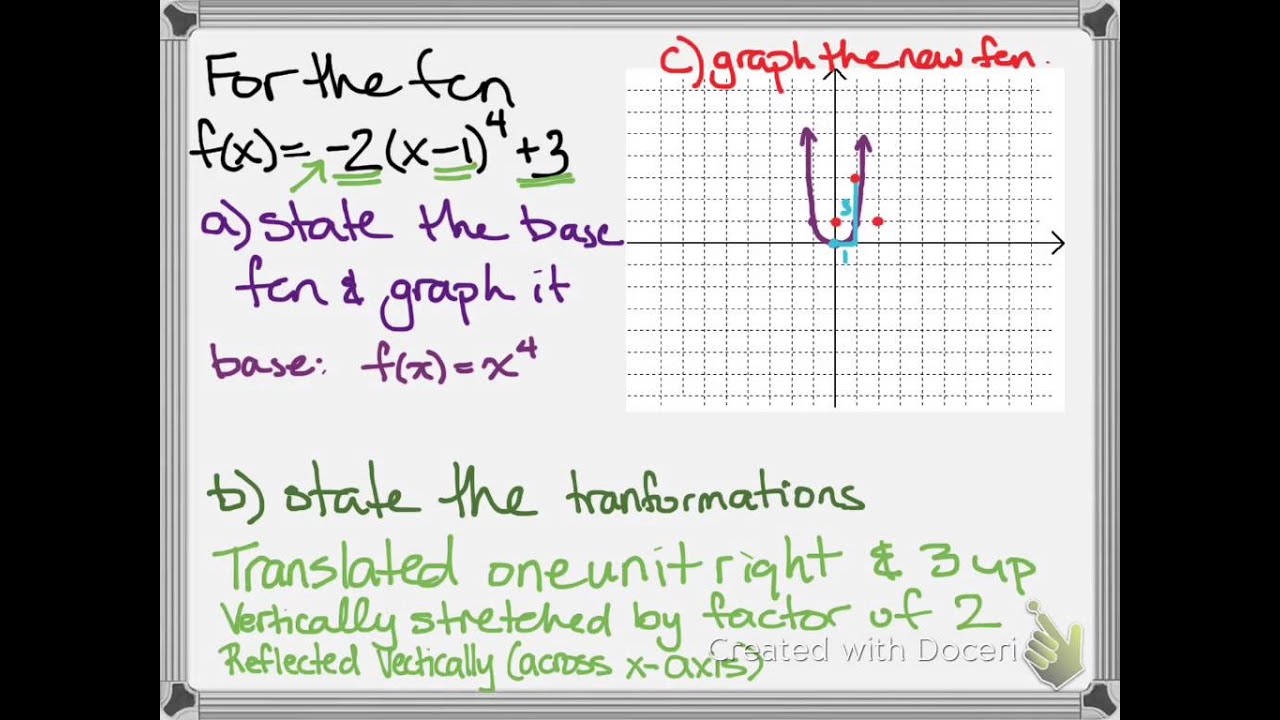 For the fcn
f(x)= -2(x-1)⁴+3
a) state the base
fcn & graph it
base: f(x)=x⁴
c) graph the new fcn.
3
1
b) state the tranformations
Translated one unit right & 3 up
Vertically stretched by factor of 2
Reflected Vertically (across x-axis)
Created with Doceri